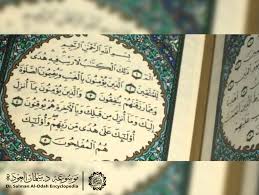 بِسْمِ اللَّهِ الرَّحْمَٰنِ الرَّحِيمِ
الٓمٓ ذَٰلِكَ الْكِتَابُ لَا رَيْبَ فِيهِ هُدًى
لِّلْمُتَّقِينَ الَّذِينَ يُؤْمِنُونَ بِالْغَيْبِ وَيُقِيمُونَ الصَّلَوٰةَ
وَمِمَّا رَزَقْنَٰهُمْ يُنفِقُونَ وَالَّذِينَ يُؤْمِنُونَ بِمَا أُنزِلَ
إِلَيْكَ وَمَا أُنزِلَ مِن قَبْلِكَ وَبِالْآخِرَةِ هُمْ يُوقِنُونَ
أُولَٰئِكَ عَلَىٰ هُدًى مِّن رَّبِّهِمْ وَأُولَٰئِكَ
هُمُ الْمُفْلِحُونَ
موسوعة د. سلمان العودة
Dr. Salman Al-Odah Encyclopedia